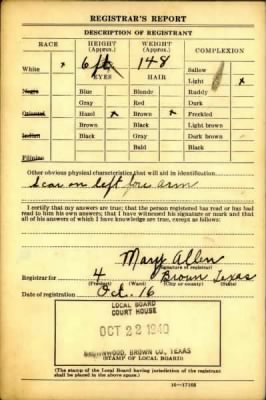 REGISTRAR'S REPORT
DESCRIPTION OF REGISTRANT
RACE HEIGHT (Approx.) WEIGHT (Approx.) COMPLEXION
White x 6 ft 148 Sallow
EYES HAIR Light x
Negro Blue Blonde Ruddy
Gray Red Dark
Oriental Hazel x Brown x Freckled
Brown Black Light brown
Indian Black Gray Dark brown
Bald Black
Filipino
Other obvious physical characteristics that will aid in identification
Scar on left fore arm
I certify that my answers are true; that the person registered has read or has had
read to him his own answers; that I have witnessed his signature or mark and that
all of his answers of which I have knowledge are true, except as follows:
Mary Allen
(Signature of registrar)
Registrar for 4 Brown Texas
(Precinct) (Ward) (City or county) (State)
Date of registration Oct. 16
LOCAL BOARD
COURT HOUSE
OCT 22 1940
BROWNWOOD, BROWN CO, TEXAS
(STAMP OF LOCAL BOARD)
(The stamp of the Local Board having jurisdiction of the registrant
shall be placed in the above space.)